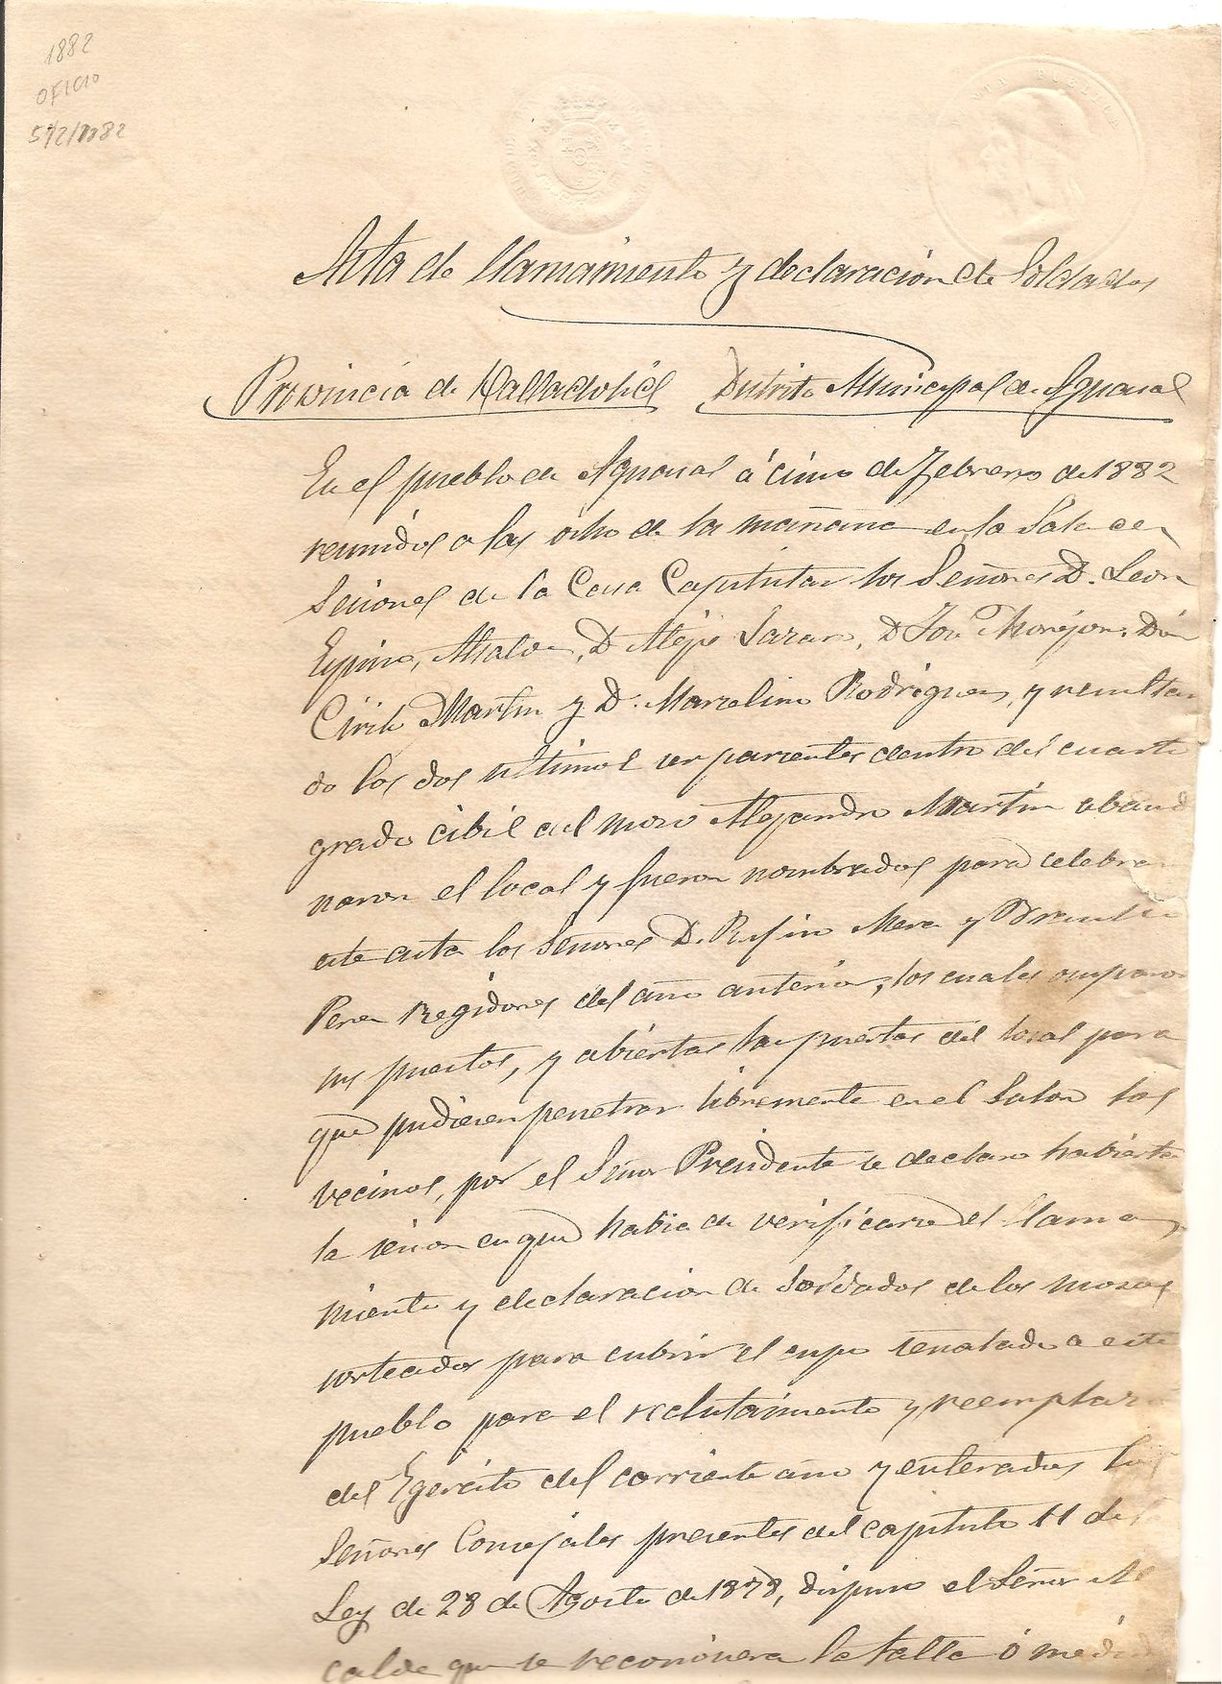 1882
OFICIO
5/2/1882
Acta de llamamiento y declaracion de Soldados
Provincia de Valladolid Distrito Municipal de Aguasal
En el pueblo de Aguasal á cinco de Febrero de 1882
reunidos a las ocho de la mañana en la Sala de
Sesiones de la Casa Capitular los Señores D. Leon
Espino, Alcalde, D Alejo D José Morejon, Don
Cirilo Martin y D. Marcelino Rodriguez, y resultan
do los dos ultimos ser parientes dentro del cuarto
grado cibil del mozo Alejandro Martin aband
naron el local y fueron nombrados para celebra
este acta los Señores D. Rufino Mera y
Perez Regidores del año anterior, los cuales ocuparon
sus puestos, y abiertas las puertas del local para
que pudiesen penetrar libremente en el Salon los
vecinos, por el Señor Presidente se declaro habierta
la sesion en que habia de verificarse el llama
miento y declaracion de Soldados de los mozos
sorteados para cubrir el cupo señalado a este
pueblo para el reclutamiento y reemplazo
del Egercito del corriente año y enterados los
Señores Concejales presentes del capitulo 11 de la
Ley de 28 de Agosto de 1878, dispuso el Señor Al
calde que se reconociera la talla ó medida